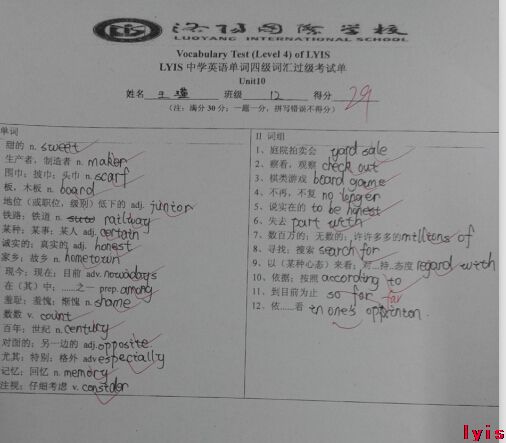 洛阳国际学校
LUOYANG INTERNATIONAL SCHOOL
Vocabulary Test (Level 4) of LYIS
LYIS 中学英语单词四级词汇过级考试单
Unit10
姓名 王瑾 班级 12 得分 29
(注:满分 30 分;一题一分,拼写错误不得分)
单词
甜的 n. sweet
生产者,制造者 n. maker
围巾;披巾;头巾 n. scarf
板,木板 n. board
地位(或职位,级别)低下的 adj. junior
铁路;铁道 n. railway
某种;某事;某人 adj. certain
诚实的;真实的 adj. honest
家乡;故乡 n. hometown
现今;现在;目前 adv. nowadays
在(其)中;……之一 prep. among
羞耻;羞愧;惭愧 n. shame
数数 v. count
百年;世纪 n. century
对面的;另一边的 adj. opposite
尤其;特别;格外 adv especially
记忆;回忆 n. memory
注视;仔细考虑 v. consider
II 词组
1、庭院拍卖会 yard sale
2、察看,观察 check out
3、棋类游戏 board game
4、不再,不复 no longer
5、说实在的 to be honest
6、失去 part with
7、数百万的;无数的;许许多多的 millions of
8、寻找;搜索 search for
9、以(某种心态)来看;对..持..态度 regard with
10、依据;按照 according to
11、到目前为止 so for far
12、依……看 in one's oppinion.
lyis